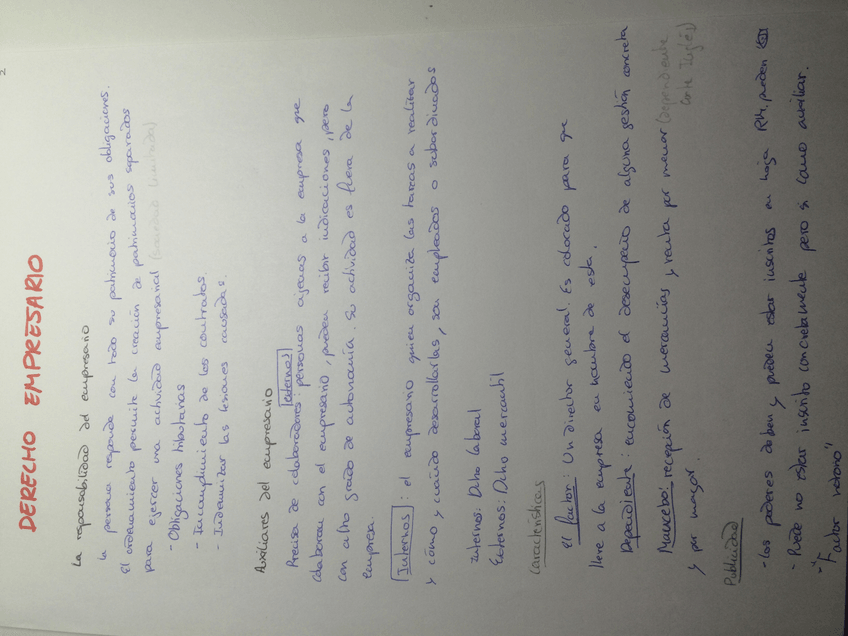 2
DERECHO EMPRESARIO
La responsabilidad del empresario
La persona responde con todo su patrimonio de sus obligaciones.
El ordenamiento permite la creación de patrimonios separados
para ejercer una actividad empresarial (sociedad limitada)
- Obligaciones tributarias
- Incumplimiento de los contratos
- Indemnizar las lesiones causadas.
Auxiliares del empresario
externos
Precisa de colaboradores: personas ajenas a la empresa que
colaboran con el empresario, pueden recibir indicaciones, pero
con alto grado de autonomía. Su actividad es fuera de la
empresa.
Internos: el empresario quien organiza las tareas a realizar
y cómo y cuándo desarrollarlas, son empleados o subordinados
Internos: Dcho laboral
Externos: Dcho mercantil
Características
el factor: Un director general. Es colocado para que
lleve a la empresa en nombre de esta.
Dependiente: encomiendo el desempeño de alguna gestión concreta
Mancebo: recepción de mercancías y venta por menor (Dependiente
Corte Inglés)
y por mayor.
Publicidad
- Los poderes deben y pueden estar inscritos en hoja RM, pueden
- Puede no estar inscrito concretamente pero si como auxiliar.
- "Factor notorio"